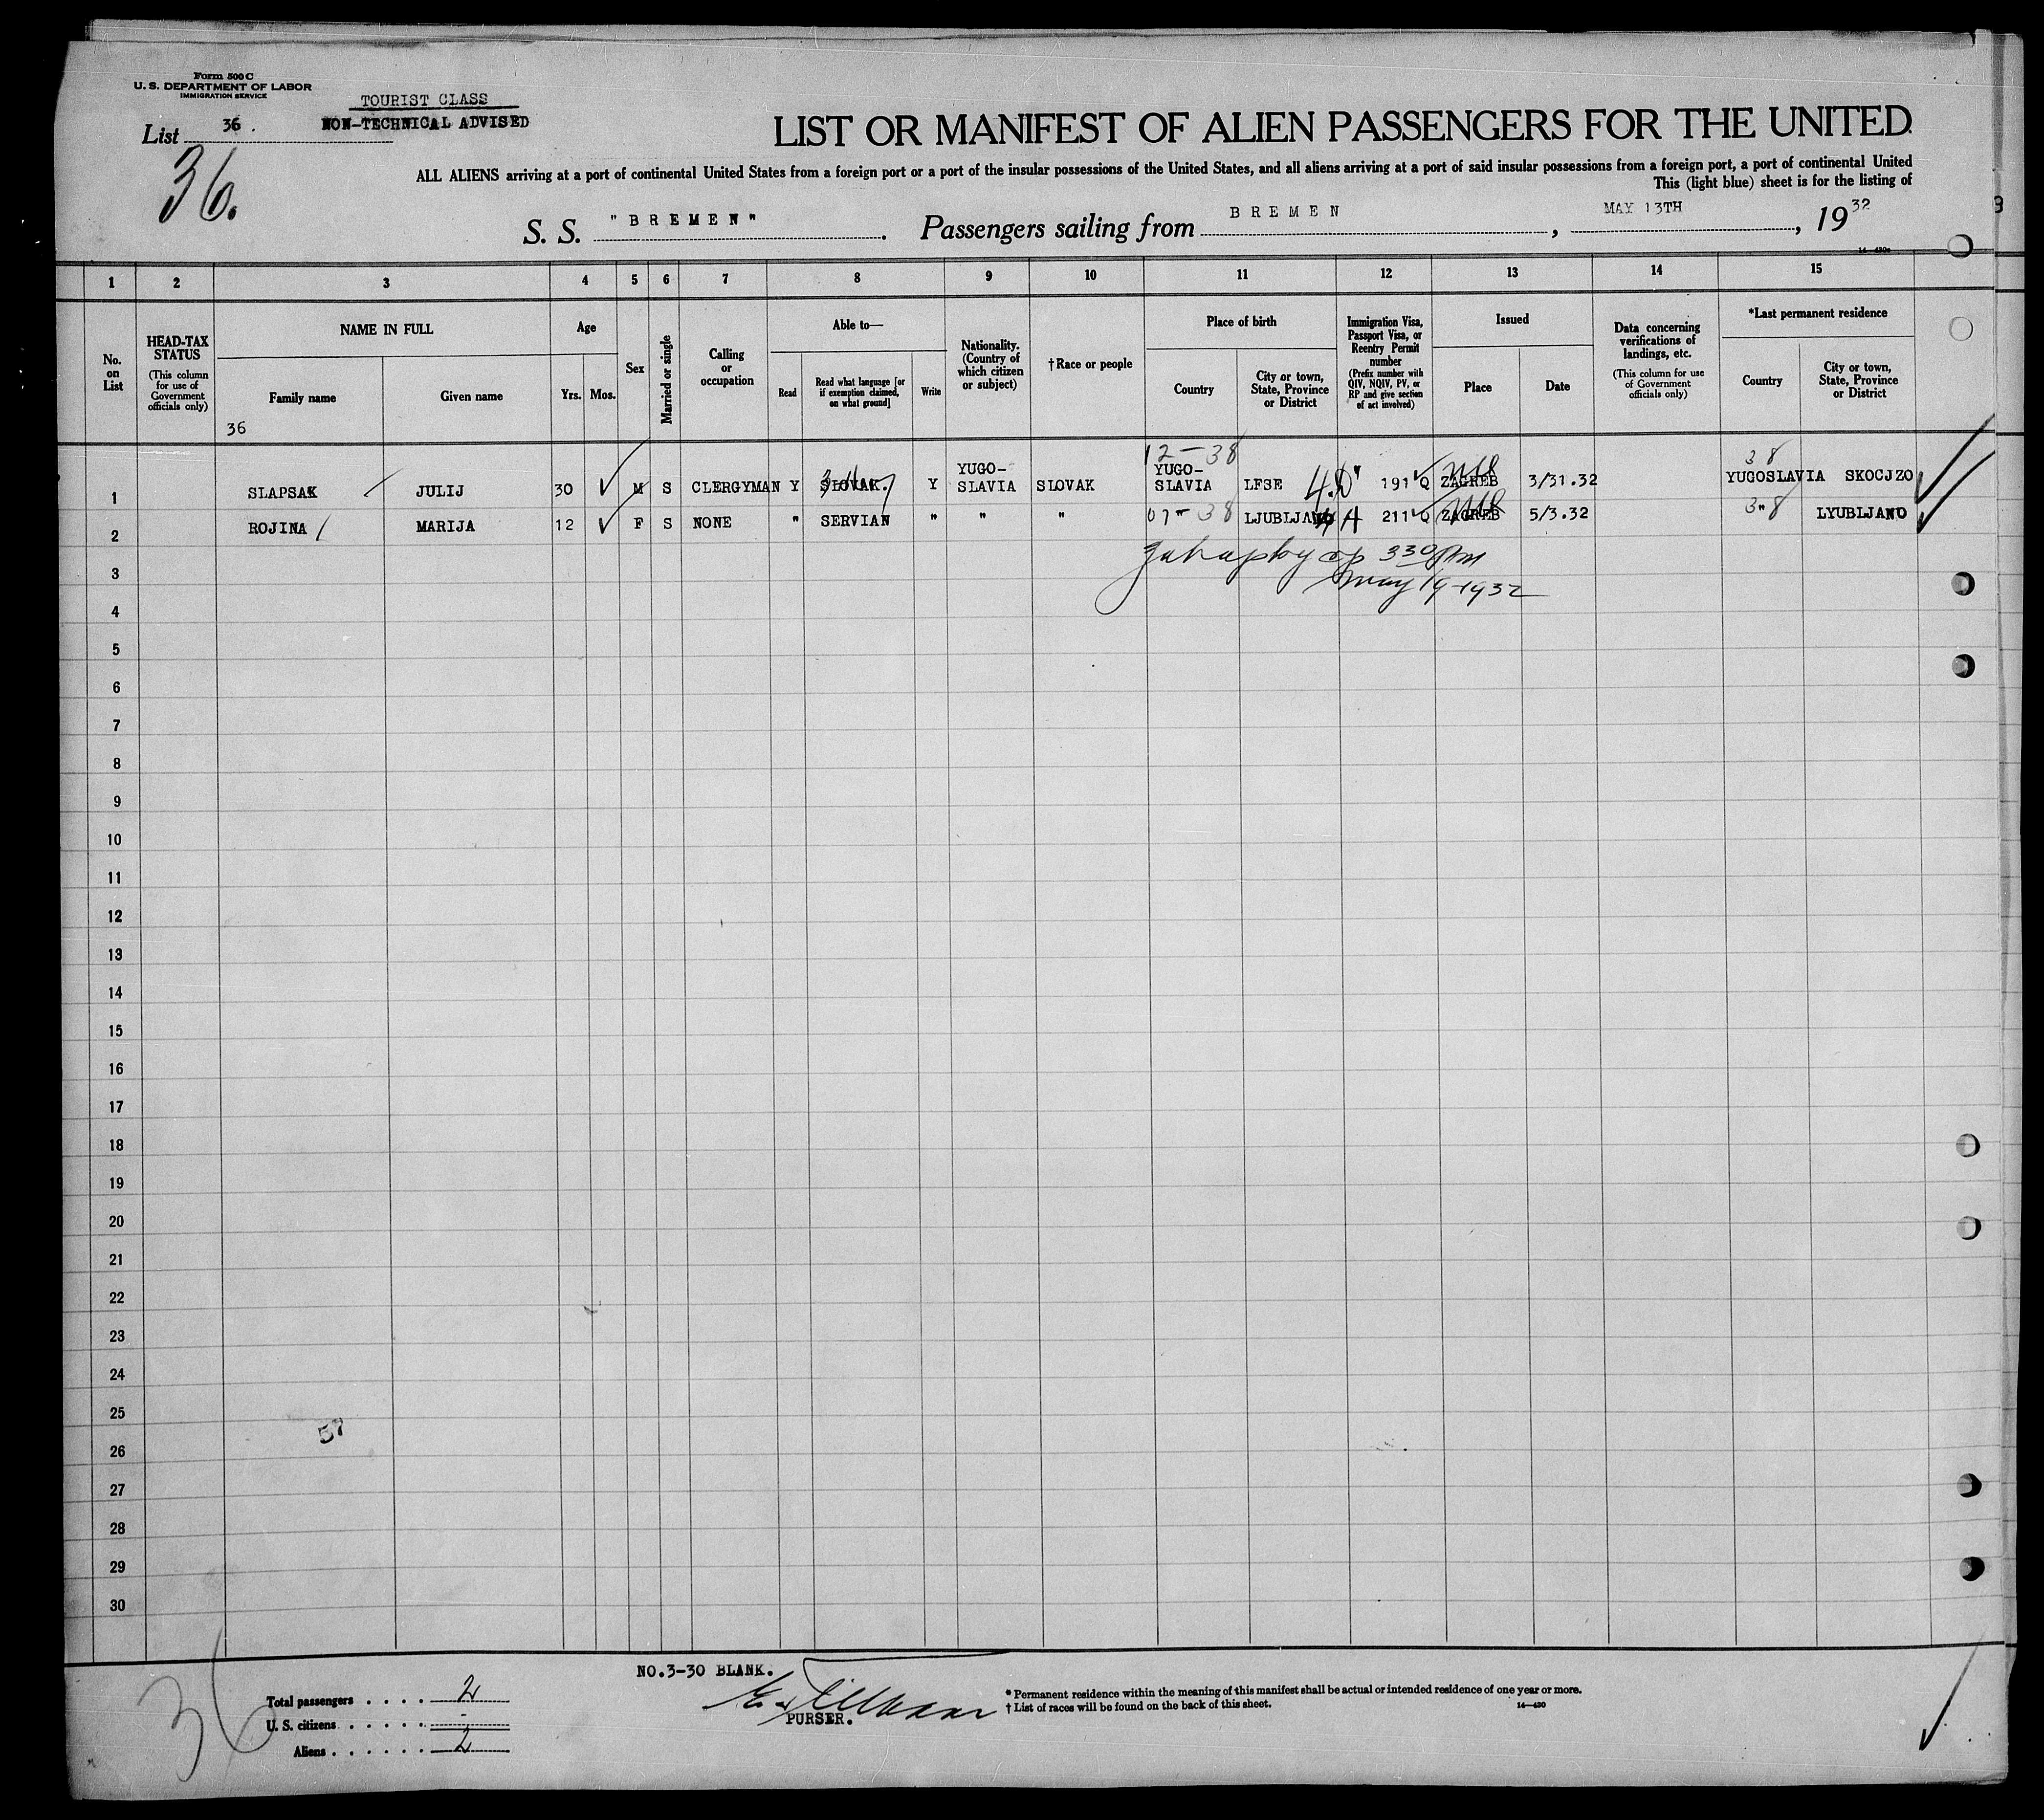 Form 500 C
U. S. DEPARTMENT OF LABOR
IMMIGRATION SERVICE
TOURIST CLASS
NON-TECHNICAL ADVISED
List 36.
36.
LIST OR MANIFEST OF ALIEN PASSENGERS FOR THE UNITED
ALL ALIENS arriving at a port of continental United States from a foreign port or a port of the insular possessions of the United States, and all aliens arriving at a port of said insular possessions from a foreign port, a port of continental United
This (light blue) sheet is for the listing of
S. S. "BREMEN". Passengers sailing from BREMEN, MAY 13TH, 1932
14-430a
1 2 3 4 5 6 7 8 9 10 11 12 13 14 15
No. on List
HEAD-TAX STATUS (This column for use of Government officials only)
NAME IN FULL
Family name
Given name
Age
Yrs. Mos.
Sex
Married or single
Calling or occupation
Able to—
Read
Read what language [or if exemption claimed, on what ground]
Write
Nationality. (Country of which citizen or subject)
†Race or people
Place of birth
Country
City or town, State, Province or District
Immigration Visa, Passport Visa, or Reentry Permit number (Prefix number with QIV, NQIV, PV, or RP and give section of act involved)
Issued
Place
Date
Data concerning verifications of landings, etc. (This column for use of Government officials only)
*Last permanent residence
Country
City or town, State, Province or District
36
12-38
38
1 SLAPSAK JULIJ 30 M S CLERGYMAN Y SLOVAK. Y YUGO-SLAVIA SLOVAK YUGO-SLAVIA LFSE 191 Q ZAGREB 3/31.32 YUGOSLAVIA SKOCJZO
2 ROJINA MARIJA 12 F S NONE " SERVIAN " " " 07" 38 LJUBLJANO 211 Q ZAGREB 5/3.32 3"8 LYUBLJANO
330 PM
May 19-1932
3
4
5
6
7
8
9
10
11
12
13
14
15
16
17
18
19
20
21
22
23
24
25
57
26
27
28
29
30
NO.3-30 BLANK.
PURSER.
36
Total passengers . . . . 2
U. S. citizens . . . . . . -
Aliens . . . . . . 2
* Permanent residence within the meaning of this manifest shall be actual or intended residence of one year or more.
† List of races will be found on the back of this sheet.
14-430